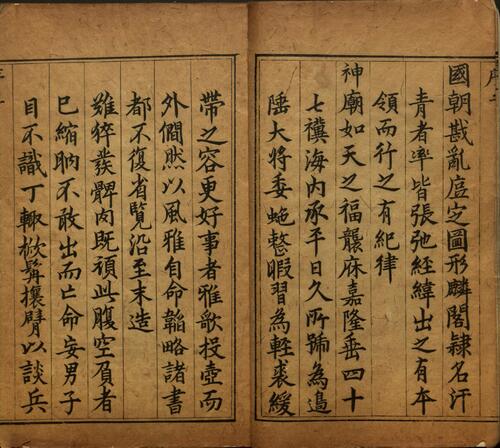 國朝戡亂扂㝎圖形麟閣隸名汗
青者率皆張弛經緯出之有本
領而行之有紀律
神廟如天之福龔庥嘉隆垂四十
七禩海內承平日久所號為邉
陲大將委虵整暇習為輕裘緩
帶之容更好事者雅歌投壺而
外僴然以風雅自命韜略諸書
都不復省覽沿至末造
雖猝發髀肉既頑此腹空負者
巳縮朒不敢出而亡命妄男子
目不識丁輙掀髯攘臂以談兵